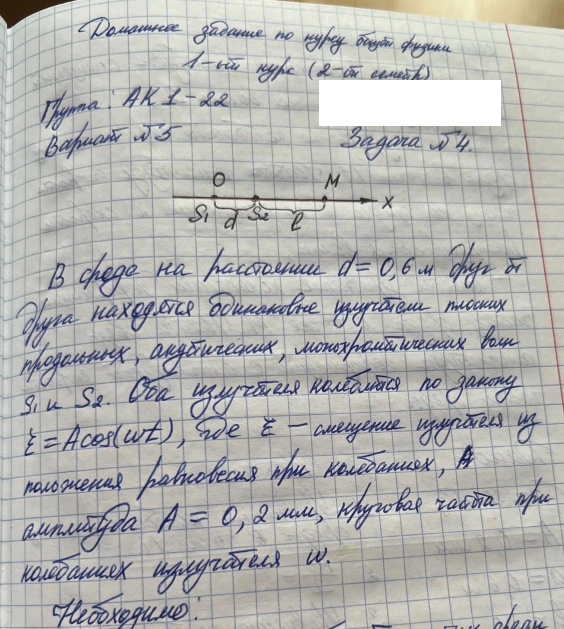 Домашнее задание по курсу общей физики
1-ый курс (2-ой семестр)
Группа: АК 1-22
Вариант №5 Задача №4.
O M
S1 d S2 l x
В среде на расстоянии d = 0,6 м друг от
друга находятся одинаковые излучатели плоских
продольных, акустических, монохроматических волн
S1 и S2. Оба излучателя колеблются по закону
ξ = Acos(wt), где ξ – смещение излучателя из
положения равновесия при колебаниях, A
амплитуда A = 0,2 мм, круговая частота при
колебаниях излучателя w.
Необходимо: